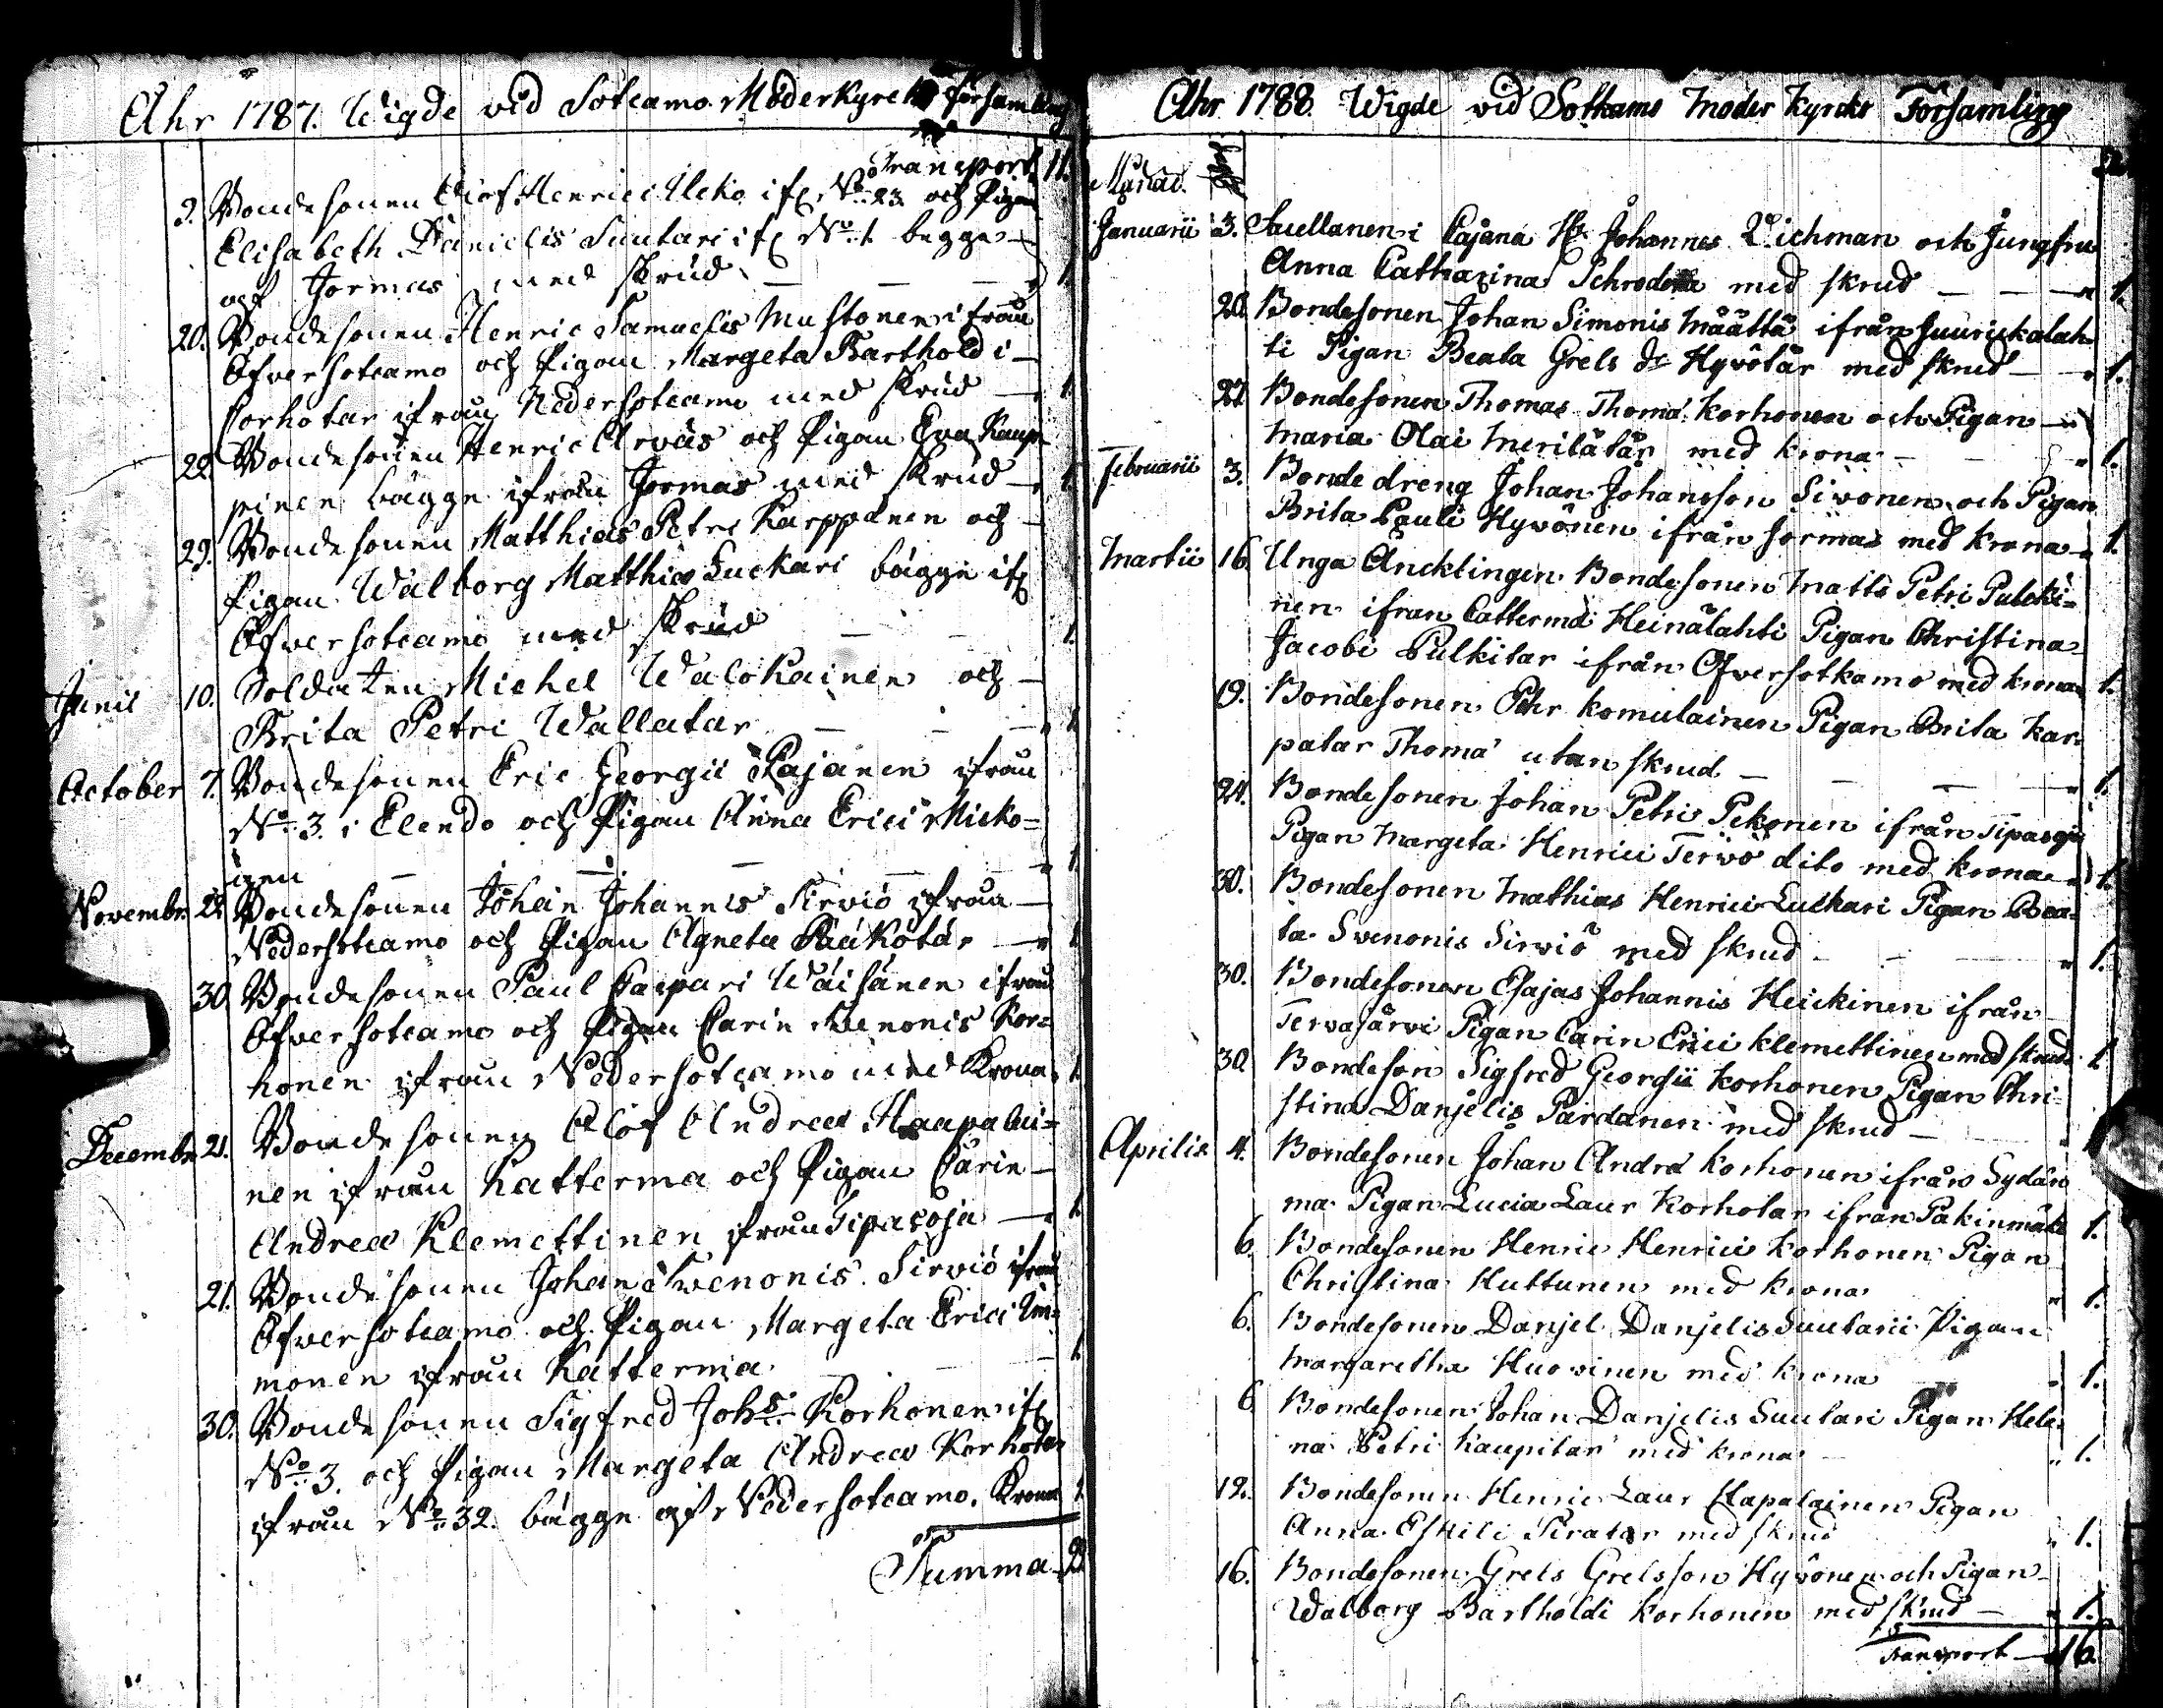 Ahr 1787. Wigde vid Sotcamo Moderkyrckio Församling
Transport. 11.
9. Bondesonen Olof Henrici Ucko if: No 23. och Pigan
Elisabeth Danielis Suutari if: No 1. begge
af Jormas med skrud 1.
20. Bondesonen Henric Samuelis Mustonen ifrån
Öfversotcamo och Pigan Margeta Bartholdi
Corhotar ifrån Nedersotcamo med skrud 1.
22. Bondesonen Henric Arväs och Pigan Eva Kaup-
pinen bägge ifrån Jormas med skrud 1.
29. Bondesonen Matthias Petri Karppanen och
Pigan Walborg Matthiæ Luckari bägge if:
Öfversotcamo med skrud 1.
Junii 10. Soldaten Michel Walckainen och
Brita Petri Wallatar 1.
October 7. Bondesonen Eric Georgii Pajanen ifrån
No 3. i Elendo och Pigan Anna Erici Micko=
inen 1.
Novembr. 22. Bondesonen Johan Johannis Sirviö ifrån
Nedersotcamo och Pigan Agneta Pääkötär 1.
30. Bondesonen Paul Caspari Wäisänen ifrån
Öfversotcamo och Pigan Carin Svenonis Kor=
honen ifrån Nedersotcamo med Krona 1.
Decembr. 21. Bondesonen Olof Andreæ Haapalai=
nen ifrån Katterma och Pigan Carin
Andreæ Klemettinen ifrån Tipasoja 1.
21. Bondesonen Johan Svenonis Sirviö ifrån
Öfversotcamo och Pigan Margeta Erici Im=
monen ifrån Katterma 1.
30. Bondesonen Sigfred Johs Korhonen if:
No 3. och Pigan Margeta Andreæ Korhotar
ifrån No 32. bägge af Nedersotcamo. Krona 1.
Summa
Ahr 1788. Wigde vid Sotkamo Moder Kyrcko Församling
Månad.
Januarii 3. i Cajana Hr Johannes Lichman och Jungfru
Anna Catharina Schrodera med skrud 1.
20. Bondesonen Johan Simonis Määttä ifrån Juurickalah-
ti Pigan Beata Grels dr Hyvötär med skrud 1.
27. Bondesonen Thomas Thomæ Korhonen och Pigan
Maria Olai Meritätär med krona 1.
Februarii 3. Bonde dreng Johan Johansson Sivonen och Pigan
Brita Pauli Hyvönen ifrån Jormas med krona 1.
Martii 16. Unga Äncklingen Bondesonen Matts Petri Pulcki=
nen ifran Catterma Heinälahti Pigan Christina
Jacobi Pulkitar ifrån Öfversotkamo med krona 1.
19. Bondesonen Pehr Komulainen Pigan Brita Kar-
patar Thomæ utan skrud 1.
24. Bondesonen Johan Petri Pekonen ifrån Tipasoja
Pigan Margeta Henrici Tervo dito med krona 1.
30. Bondesonen Mathias Henrici Luckari Pigan Bea-
ta Svenonis Sirviö med skrud 1.
30. Bondesonen Esajas Johannis Heickinen ifrån
Tervajärvi Pigan Carin Erici Klemettinen med skrud 1.
30. Bondeson Sigfred Georgii Korhonen Pigan Chri-
stina Danjelis Pardanen med skrud 1.
Aprilis 4. Bondesonen Johan Andræ Korhonen ifrån Sydän
ma Pigan Lucia Laur Korhotar ifrån Pakinmäki 1.
6. Bondesonen Henric Henrici Korhonen Pigan
Christina Huttunen med krona 1.
6. Bondesonen Danjel Danjelis Suutarii Pigan
Margaretha Huovinen med krona 1.
6. Bondesonen Johan Danjelis Suutari Pigan Hele-
na Petri Kaupitar med krona 1.
12. Bondesonen Henric Laur Hapalainen Pigan
Anna Eskili Piratar med skrud 1.
16. Bondesonen Grels Grelsson Hyvönen och Pigan
Walborg Bartholdi Korhonen med skrud 1.
Transport 16.